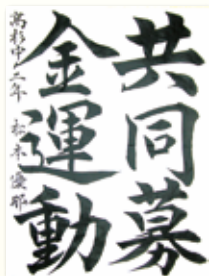 共同募
金運動
高杉中二年 松本優那